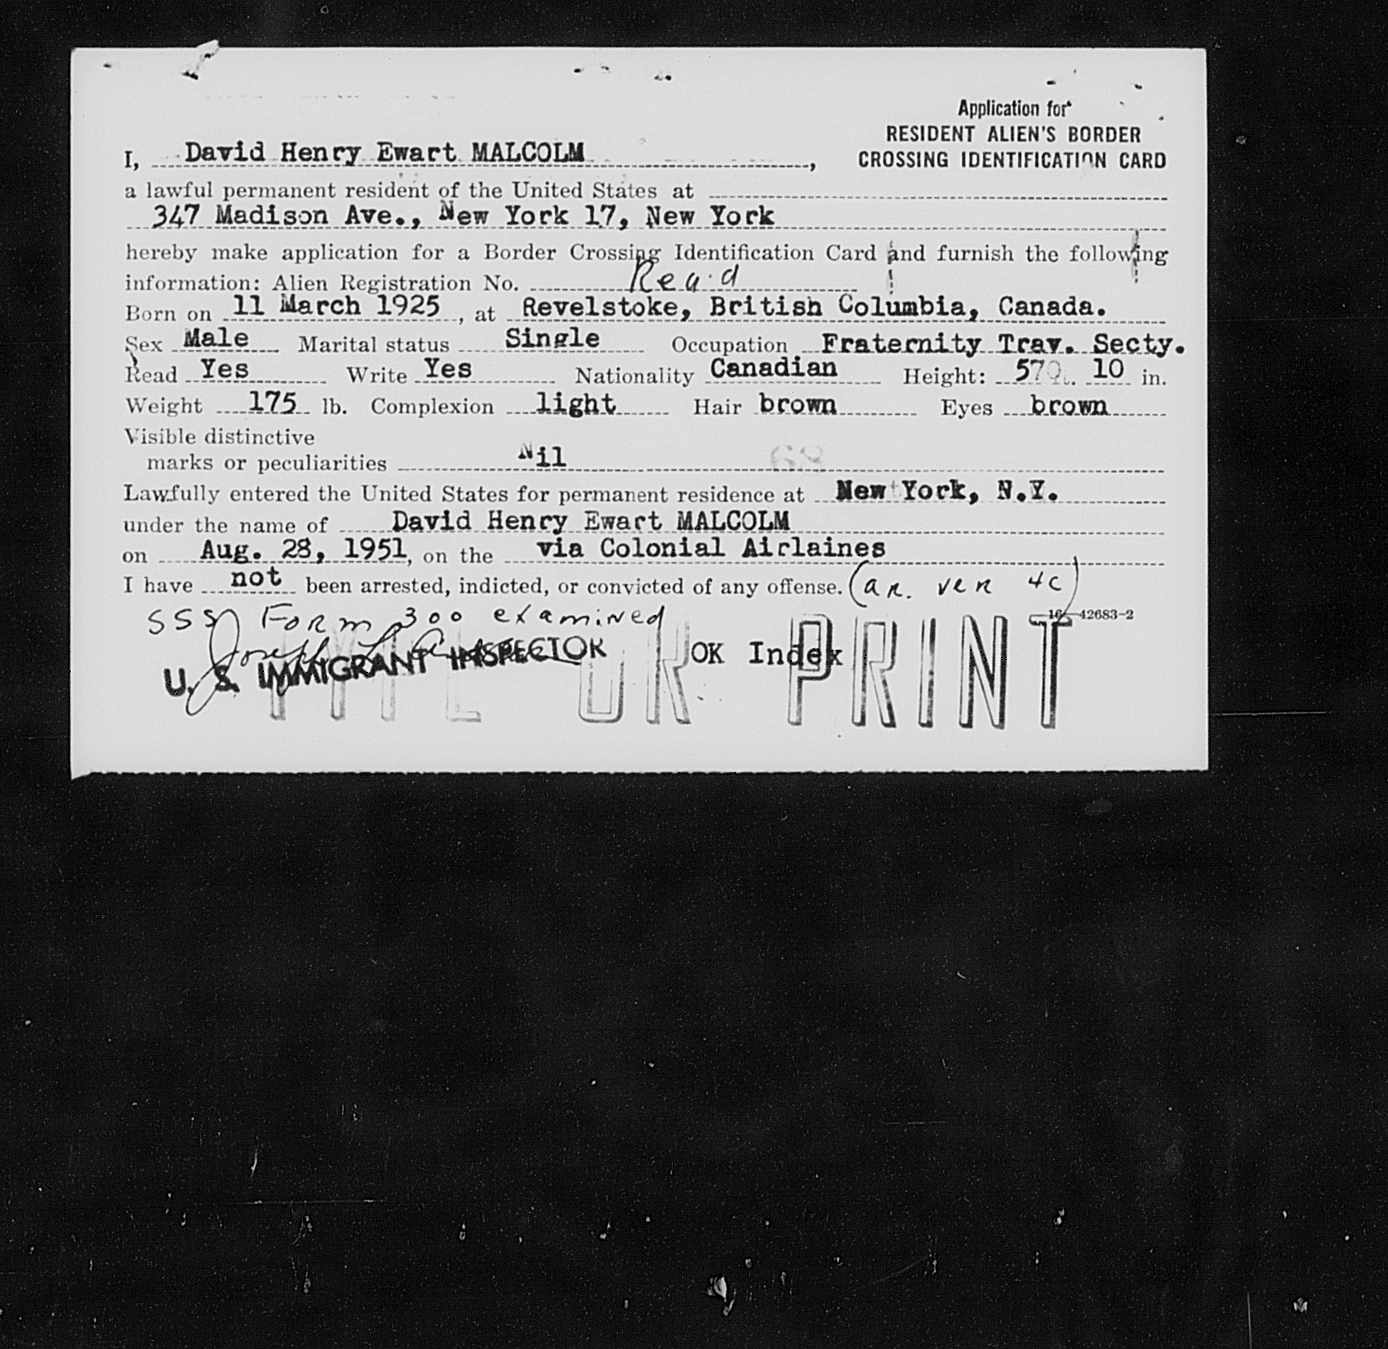 Application for
RESIDENT ALIEN'S BORDER
CROSSING IDENTIFICATION CARD
I, David Henry Ewart MALCOLM,
a lawful permanent resident of the United States at
347 Madison Ave., New York 17, New York
hereby make application for a Border Crossing Identification Card and furnish the following
information: Alien Registration No. Req'd
Born on 11 March 1925, at Revelstoke, British Columbia, Canada.
Sex Male Marital status Single Occupation Fraternity Trav. Secty.
Read Yes Write Yes Nationality Canadian Height: 5 10 in.
Weight 175 lb. Complexion light Hair brown Eyes brown
Visible distinctive
marks or peculiarities Nil
Lawfully entered the United States for permanent residence at New York, N.Y.
under the name of David Henry Ewart MALCOLM
on Aug. 28, 1951, on the via Colonial Airlaines
I have not been arrested, indicted, or convicted of any offense. (ar. ver 4c)
SSS Form 300 examined
16—42683-2
U. S. IMMIGRANT INSPECTOR OK Index
TYPE OR PRINT